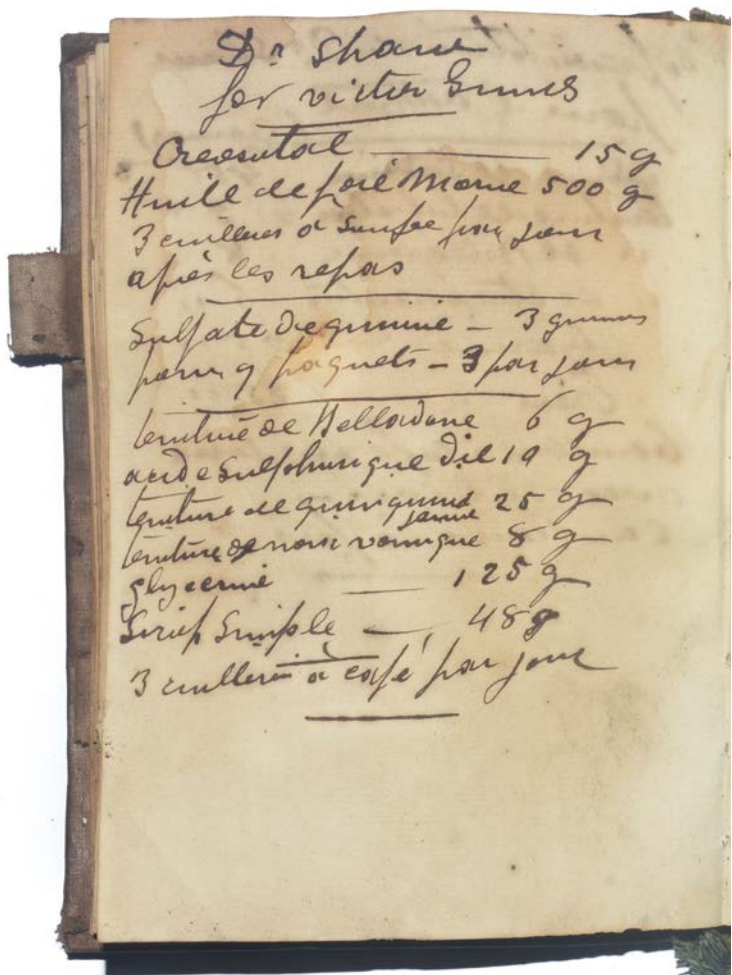 Dr Shane
for victor
Creosotal — 15 g
Huile de foie Morue 500 g
3 cuilleres a Soupe par jour
après les repas
Sulfate de quinine – 3 grammes
pour 9 paquets – 3 par jour
teinture de Belladone 6 g
acide Sulphurique Dil 10 g
teinture de quinquina 25 g
jaune
teinture de noix vomique 8 g
glycerine — 125 g
Sirop Simple — 48 g
3 cuillerée à café par jour